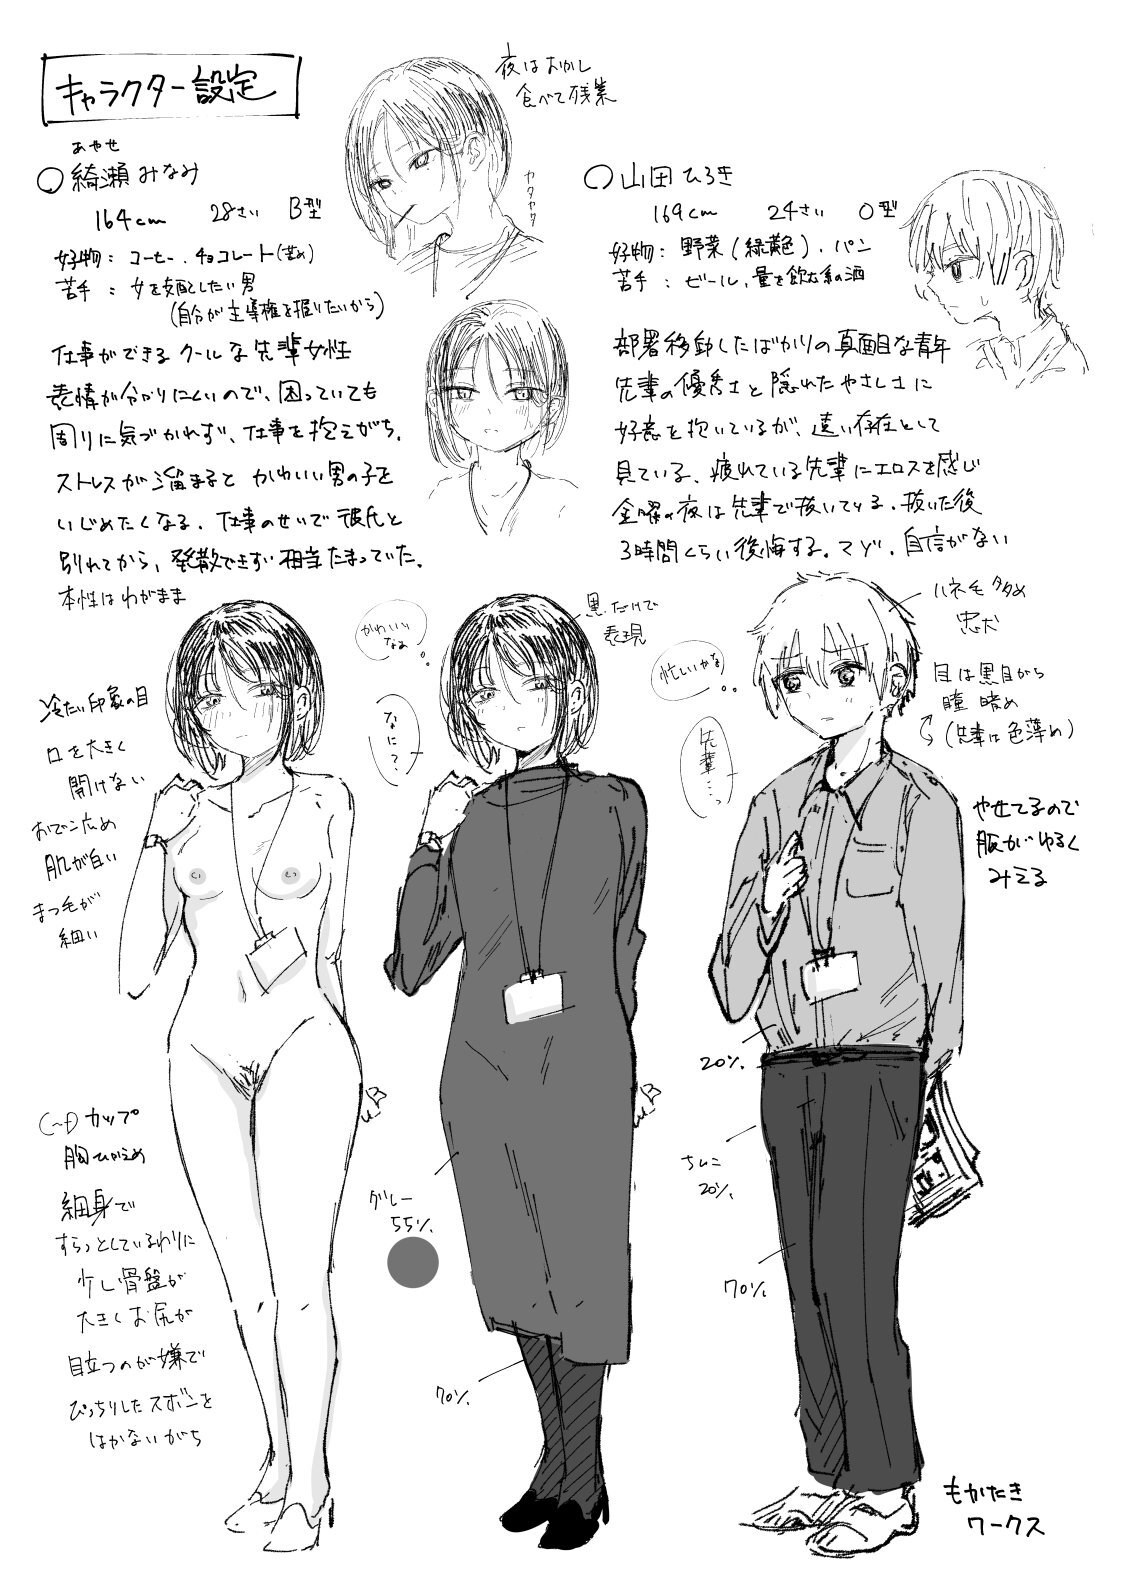 キャラクター設定
あやせ
○綺瀬みなみ
164cm 28さい B型
好物：コーヒー、チョコレート(甘め)
苦手：女を支配したい男
(自分が主導権を握りたいから)
仕事ができるクールな先輩女性
表情が分かりにくいので、困っていても
周りに気づかれず、仕事を抱えがち。
ストレスが溜まると かわいい男の子を
いじめたくなる。仕事のせいで彼氏と
別れてから、発散できず相当たまっていた。
本性はわがまま
夜はおかし
食べて残業
カタカタ
○山田ひろき
169cm 24さい O型
好物：野菜(緑黄色)、パン
苦手：ビール、量を飲む系の酒
部署移動したばかりの真面目な青年
先輩の優秀さと隠れたやさしさに
好意を抱いているが、遠い存在として
見ている。疲れている先輩にエロスを感じ
金曜の夜は先輩で抜いている。抜いた後
3時間くらい後悔する。マゾ。自信がない
冷たい印象の目
口を大きく
開けない
おでこ広め
肌が白い
まつ毛が
細い
かわいい
なぁ
なに？
黒だけで
表現
忙しいかな
先輩…っ
ハネ毛多め
忠犬
目は黒目がち
瞳 暗め
(先輩は色薄め)
やせてるので
服がゆるく
みえる
カップ
胸ひかえめ
細身で
すらっとしているわりに
少し骨盤が
大きくお尻が
目立つのが嫌で
ぴっちりしたズボンを
はかないがち
グレー
55%
70%
20%
20%
70%
もかたき
ワークス